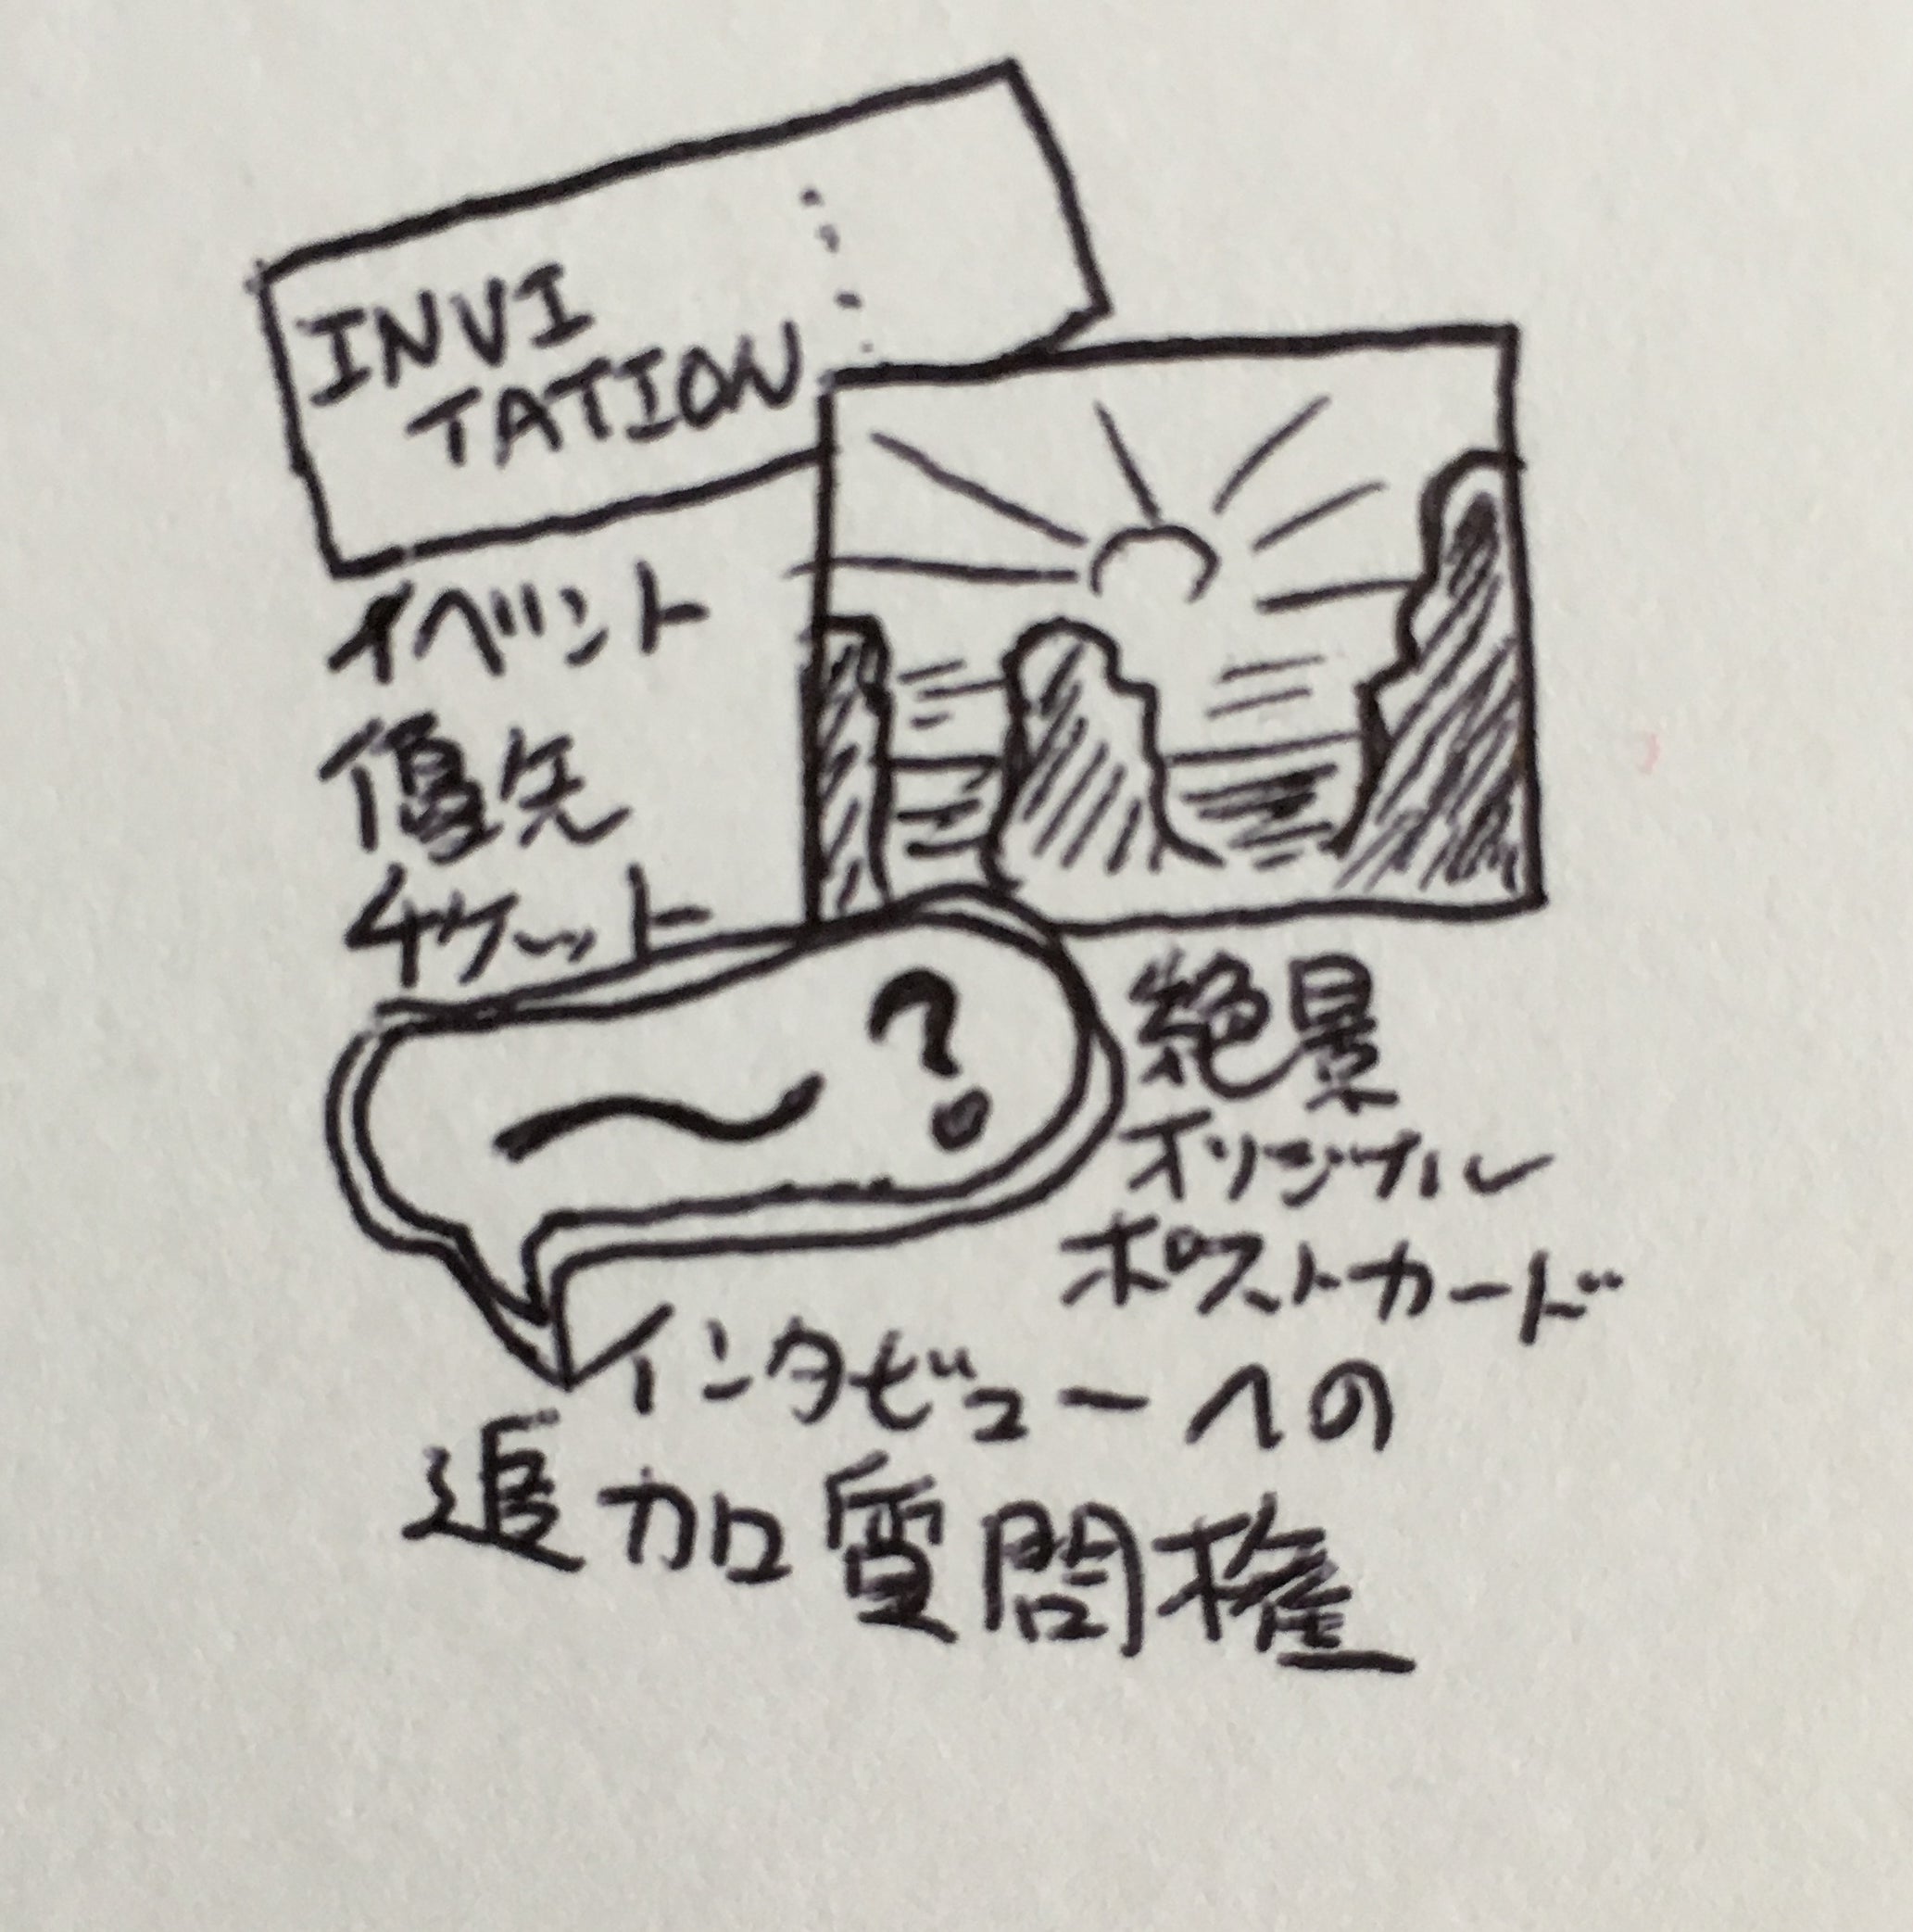 INVI
TATION
イベント
優先
チケット
～?
絶景
オリジナル
ポストカード
インタビューへの
追加質問権